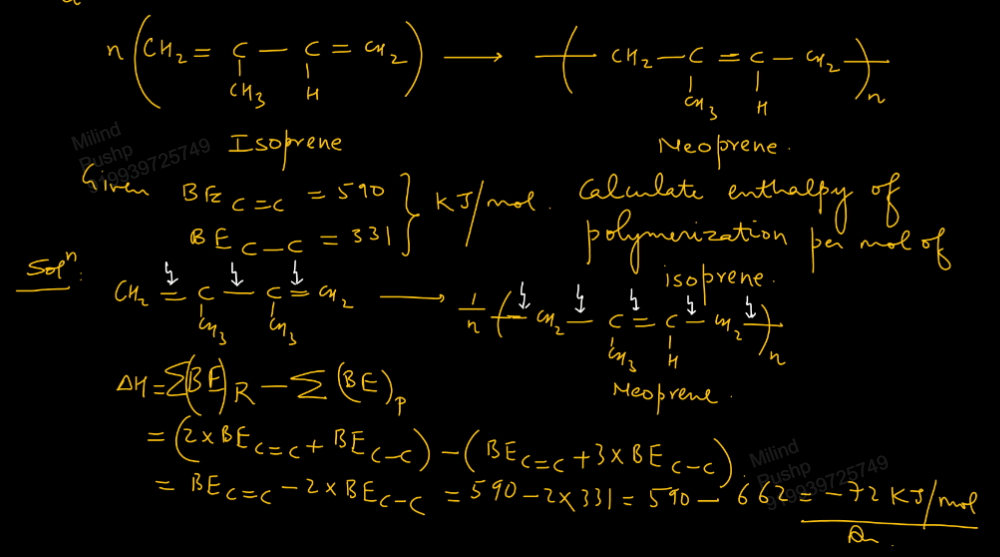 n(CH₂ = C — C = CH₂) ⟶ —( CH₂—C = C — CH₂ —)n
CH₃ H CH₃ H
Isoprene Neoprene.
Milind
Pushp
919939725749
Given BE C=C = 590 } KJ/mol. Calculate enthalpy of
BE C—C = 331 polymerization per mol of
isoprene.
Solⁿ:
CH₂ = C — C = CH₂ ⟶ 1/n (— CH₂ — C = C — CH₂ —)n
CH₃ CH₃ CH₃ H
Neoprene.
ΔH = Σ(BE)R — Σ (BE)p
= (2×BE C=C + BE C—C) — (BE C=C + 3×BE C—C)
= BE C=C — 2×BE C—C = 590 — 2×331 = 590 — 662 = —72 KJ/mol
Milind
Pushp
919939725749